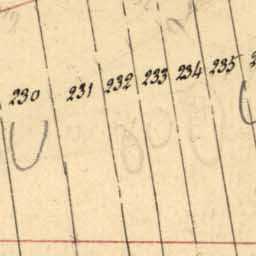 230 231 232 233 234 235